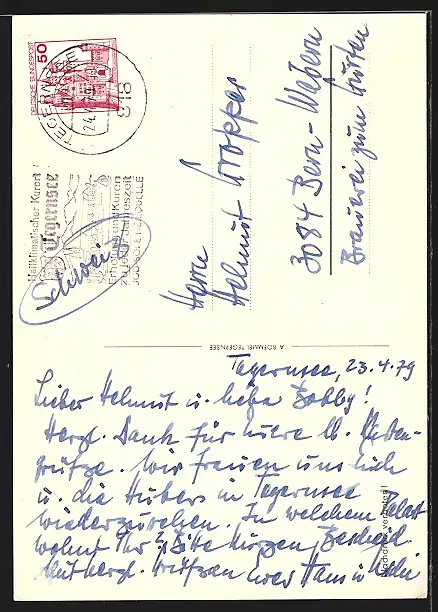 DEUTSCHE BUNDESPOST
50
TEGERNSEE
24.
8183
Heilklimatischer Kurort
Tegernsee
Erholung und Kuren
zu jeder Jahreszeit
JODQUELLE
Schweiz
Herrn
Helmut
3084 Bern-Wabern
Brauerei zum Gurten
A. BOEMMEL TEGERNSEE
Tegernsee, 23.4.79
Lieber Helmut u. liebe Bobby!
Herzl. Dank für Eure lb.
grüße. Wir freuen uns Dich
u. die Hubers in Tegernsee
wiederzusehen. In welchem Palast
wohnt Ihr? Bitte kurzen Bescheid
Mit herzl. Grüßen Euer Hans u.